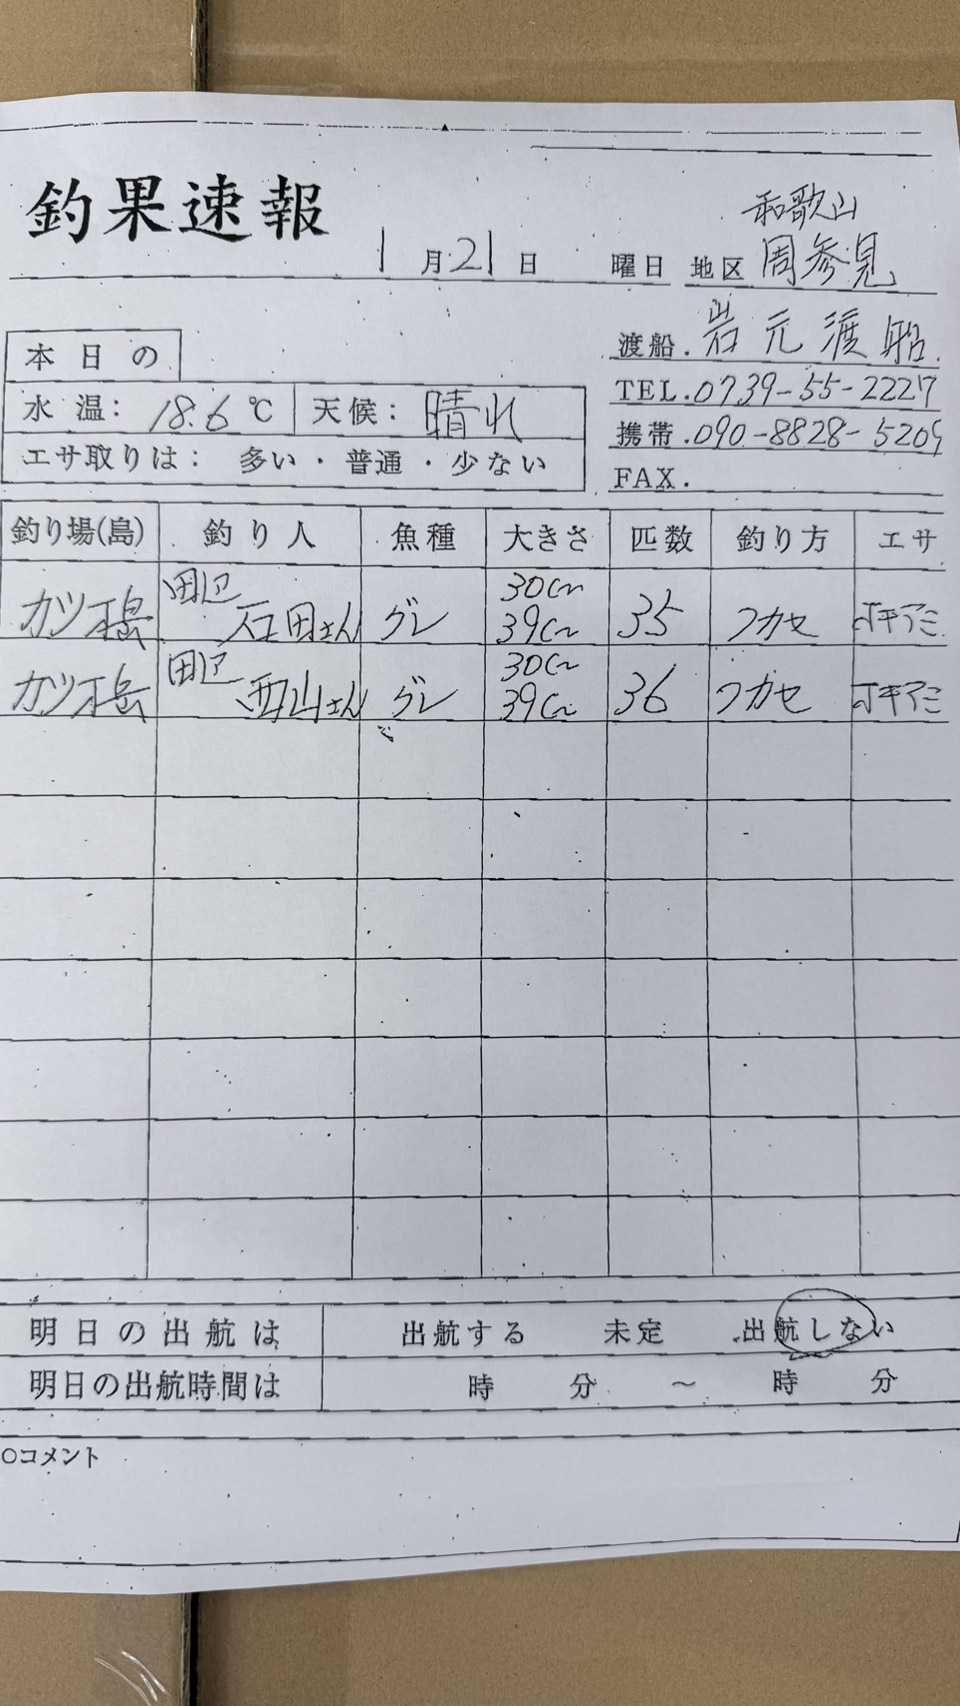 釣果速報
1月21日　曜日
和歌山
地区 周参見
渡船．岩元渡船．
TEL．0739-55-2227
携帯．090-8828-5209
FAX．
本日の
水温：18.6℃　天候：晴れ
エサ取りは：多い・普通・少ない
釣り場(島)　釣り人　魚種　大きさ　匹数　釣り方　エサ
カツオ島　田辺 石田さん　グレ　30cm 39cm　35　フカセ　オキアミ
カツオ島　田辺 西山さん　グレ　30cm 39cm　36　フカセ　オキアミ
明日の出航は　出航する　未定　出航しない
明日の出航時間は　時　分　～　時　分
○コメント